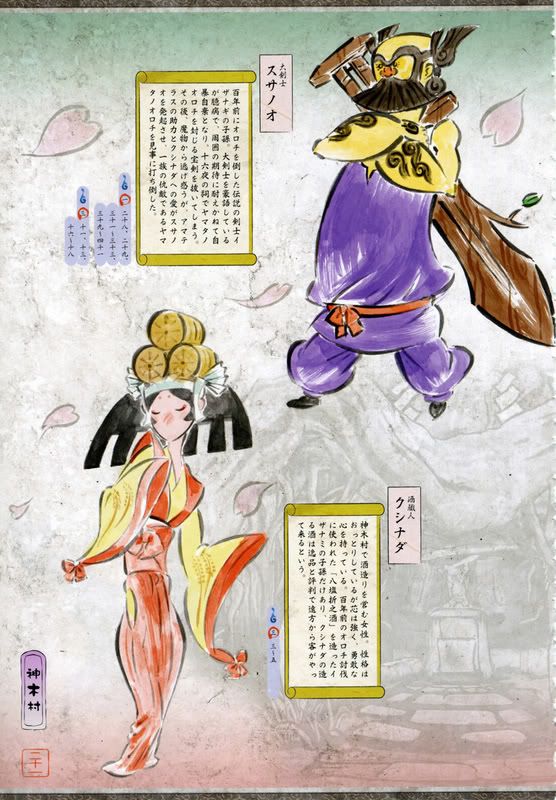 大剣士
スサノオ
百年前にオロチを倒した伝説の剣士イ
ザナギの子孫。大剣士を豪語している
が臆病で、周囲の期待に耐えかねて自
暴自棄となり、十六夜の祠でヤマタノ
オロチを封じる宝剣を抜いてしまう。
その後、魔物から逃げ惑うが、アマテ
ラスの助力とクシナダへの愛がスサノ
オを発起させ、一族の仇敵であるヤマ
タノオロチを見事に打ち倒した。
二十八、二十九、
三十一〜三十三、
三十九〜四十一
十一、十三、
十六〜十八
酒職人
クシナダ
神木村で酒造りを営む女性。性格は
おっとりしているが芯は強く、勇敢な
心を持っている。百年前のオロチ討伐
に使われた「八塩折之酒」を造ったイ
ザナミの子孫だけあり、クシナダの造
る酒は逸品と評判で遠方から客がやっ
て来るという。
三〜五
神木村
三十二